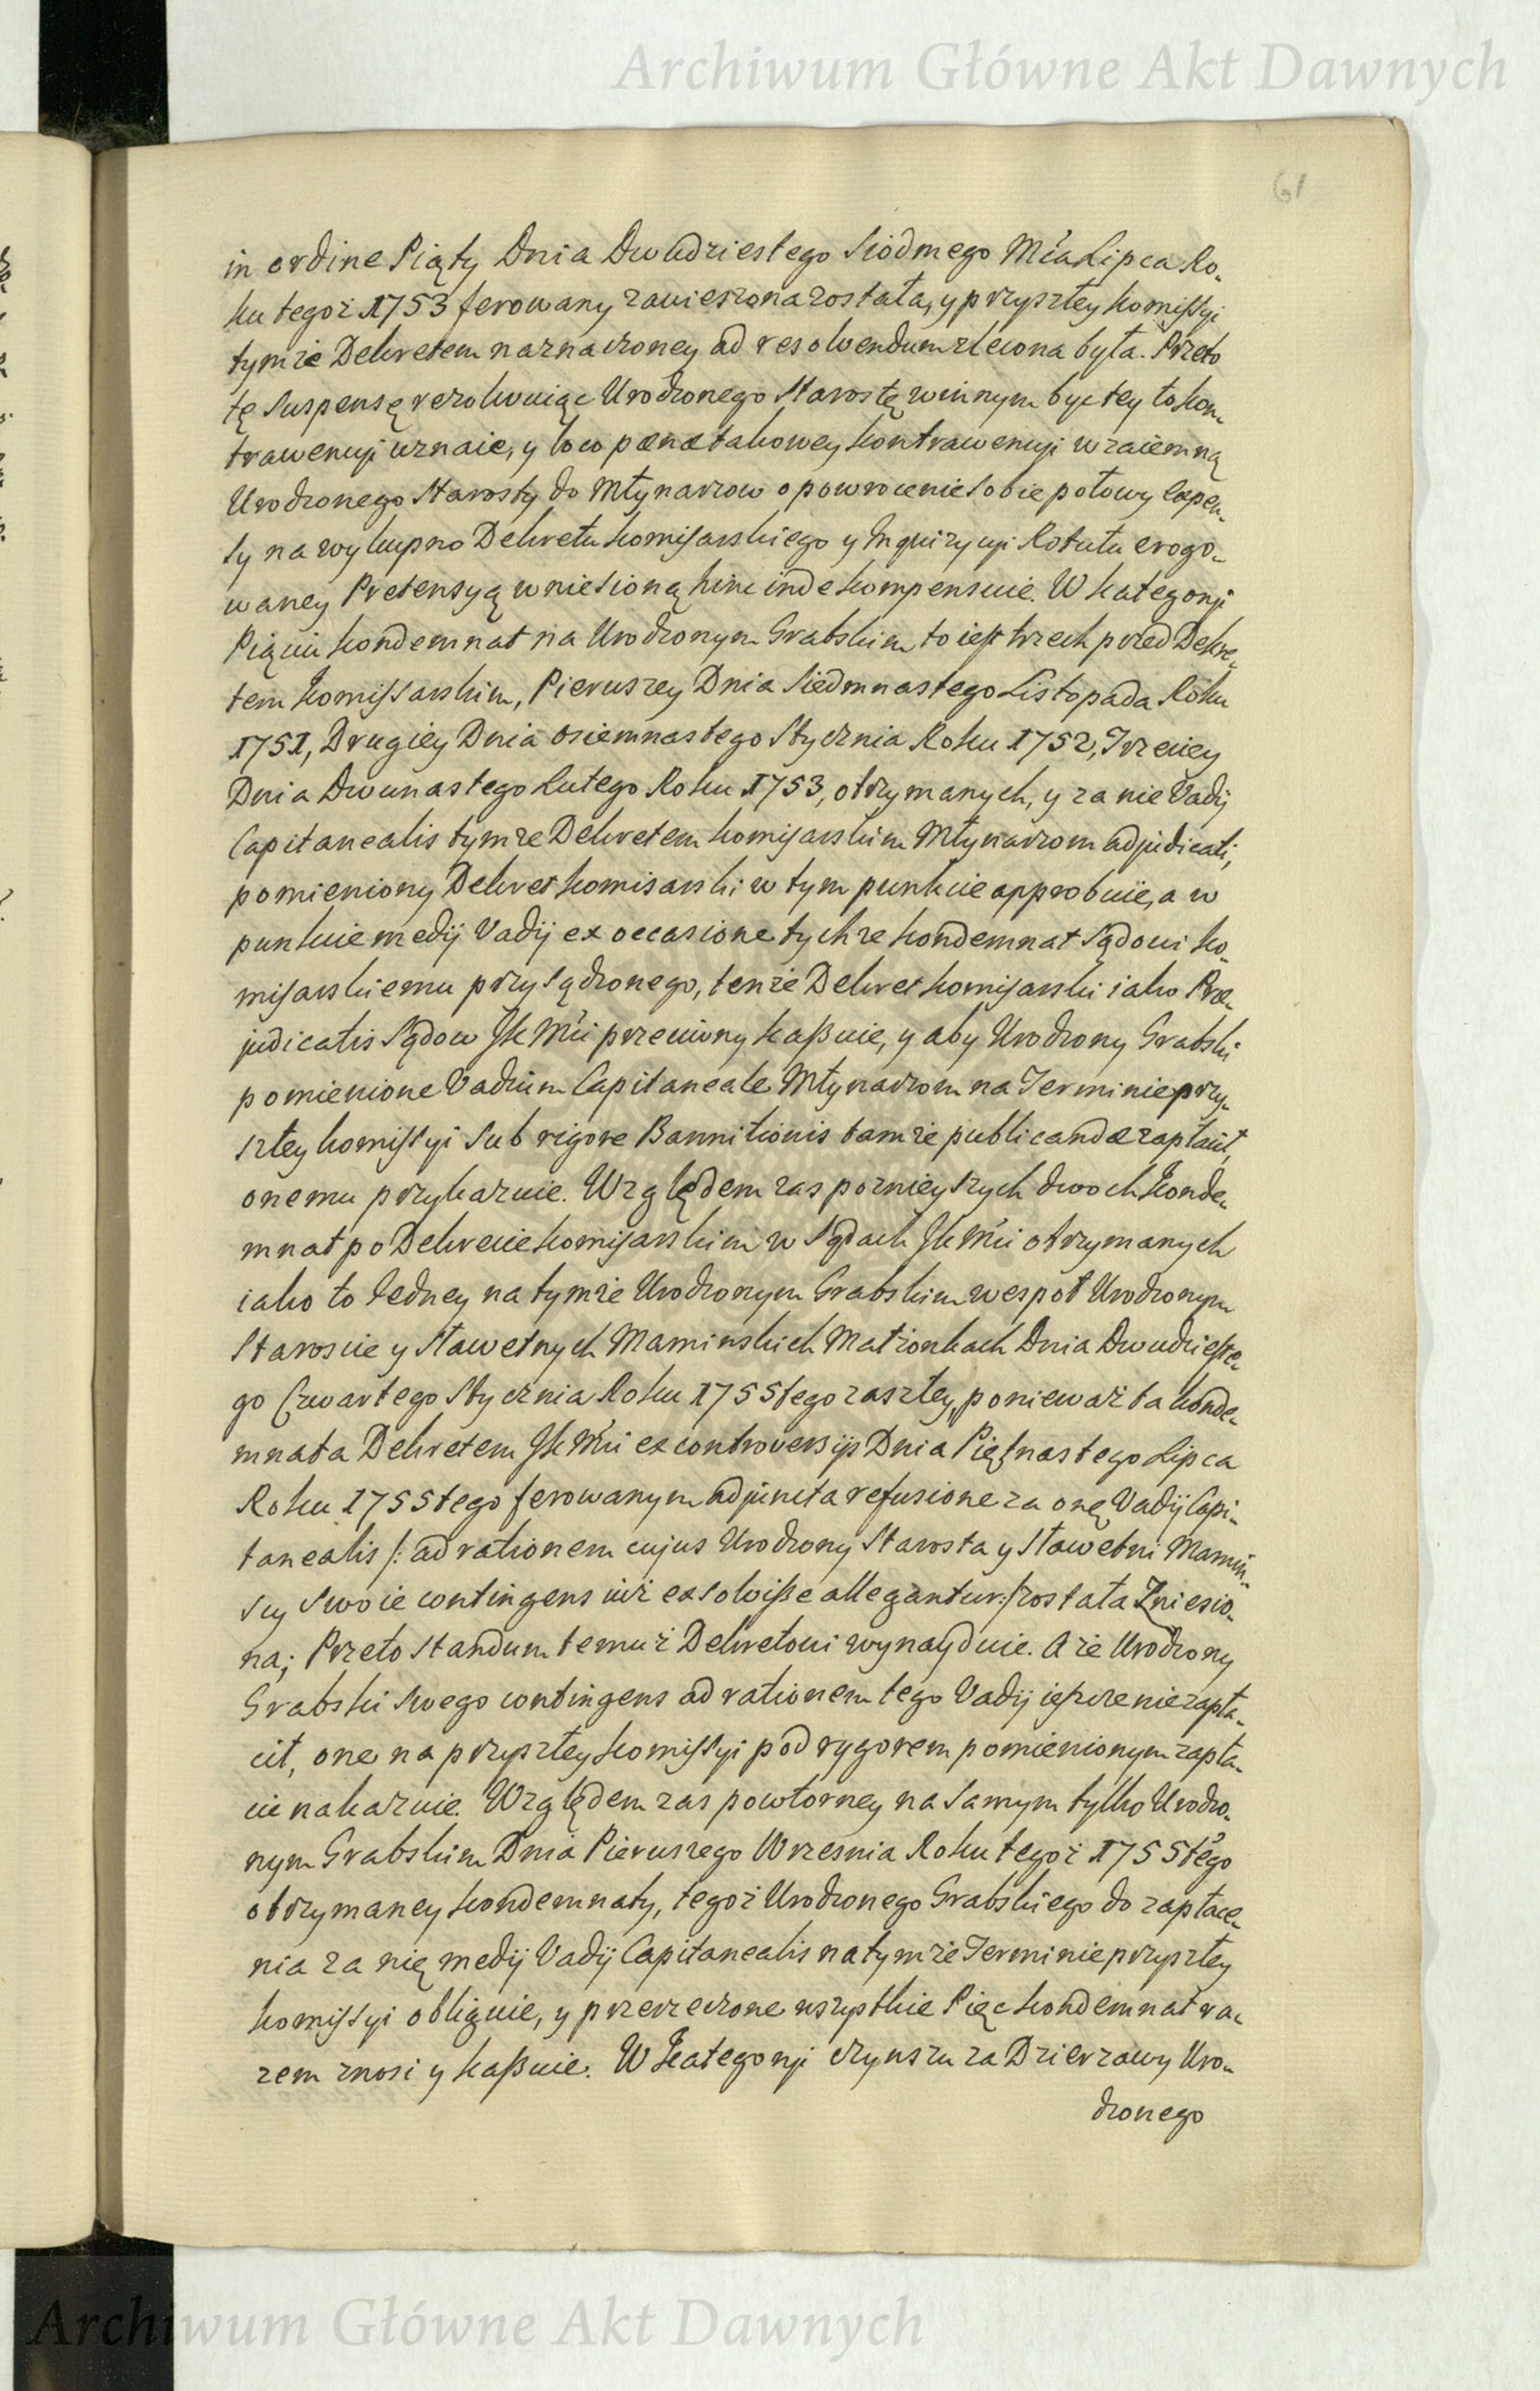 Archiwum Główne Akt Dawnych
61
in ordine Piąty Dnia Dwudziestego Siodmego M'ca Lipca Ro-
ku tegoż 1753 ferowany zawieszona została, y przyszłey kommissyi
tymże Dekretem naznaczoney ad resolvendum zlecona była. Przeto
tę Suspensę rezolwuiąc Urodzonego Starostę winnym byc tey to kon-
trawencyi uznaie, y loco pænæ takowey kontrawencyi wzaiemną
Urodzonego Starosty do Młynarzow o powrocenie sobie połowy Expen-
sy na wykupno Dekretu komisarskiego y Inquizycyi Rotułu erogo-
waney Pretensyą wniesioną hinc inde kompensuie. W kategoryi
Piąciu kondemnat na Urodzonym Grabskim to iest trzech przed Dekre-
tem komissarskim, Pierwszey Dnia Siedmnastego Listopada Roku
1751, Drugiey Dnia osiemnastego Stycznia Roku 1752, Trzeciey
Dnia Dwunastego Lutego Roku 1753, otrzymanych, y za nie Vadij
Capitanealis tymże Dekretem komisarskim Młynarzom adjudicati,
pomieniony Dekret komisarski w tym punkcie approbuie, a w
punkcie medij Vadij ex occasione tychże kondemnat Sądowi ko-
misarskiemu przysądzonego, tenże Dekret komisarski iako Præ-
judicatis Sądow JK Mci przeciwny kaßuie, y aby Urodzony Grabski
pomienione Vadium Capitaneale Młynarzom na Terminie przy-
szłey komissyi sub rigore Bannitionis tamże publicandæ zapłacił,
onemu przykazuie. Względem zas poznieyszych dwoch konde-
mnat po Dekrecie komisarskim w Sądach JK Mci otrzymanych
iako to Jedney na tymże Urodzonym Grabskim wespoł Urodzonym
Staroscie y Sławetnych Maminskich Małżonkach Dnia Dwudzieste-
go Czwartego Stycznia Roku 1755tego zaszłey, ponieważ ta konde-
mnata Dekretem JK Mci ex controversijs Dnia Piętnastego Lipca
Roku 1755tego ferowanym adjuncta refusione za onę Vadij Capi-
tanealis /: ad rationem cujus Urodzony Starosta y Sławetni Mamin-
scy Swoie contingens iuż exsolviße allegantur :/ została Zniesio-
na; Przeto standum temuż Dekretowi wynayduie. A że Urodzony
Grabski swego contingens ad rationem tego Vadij ieszcze niezapła-
cił, one na przyszłey komissyi pod rygorem pomienionym zapła-
cić nakazuie. Względem zas powtorney na samym tylko Urodzo-
nym Grabskim Dnia Pierwszego Wrzesnia Roku tegoż 1755tego
otrzymaney kondemnaty, tegoż Urodzonego Grabskiego do zapłace-
nia za nię medij Vadij Capitanealis na tymże Terminie przyszłey
komissyi obliguie, y przerzeczone wszystkie Pięc kondemnat ra-
zem znosi y kaßuie. W kategoryi czynszu za Dzierzawy Uro-
dzonego
Archiwum Główne Akt Dawnych